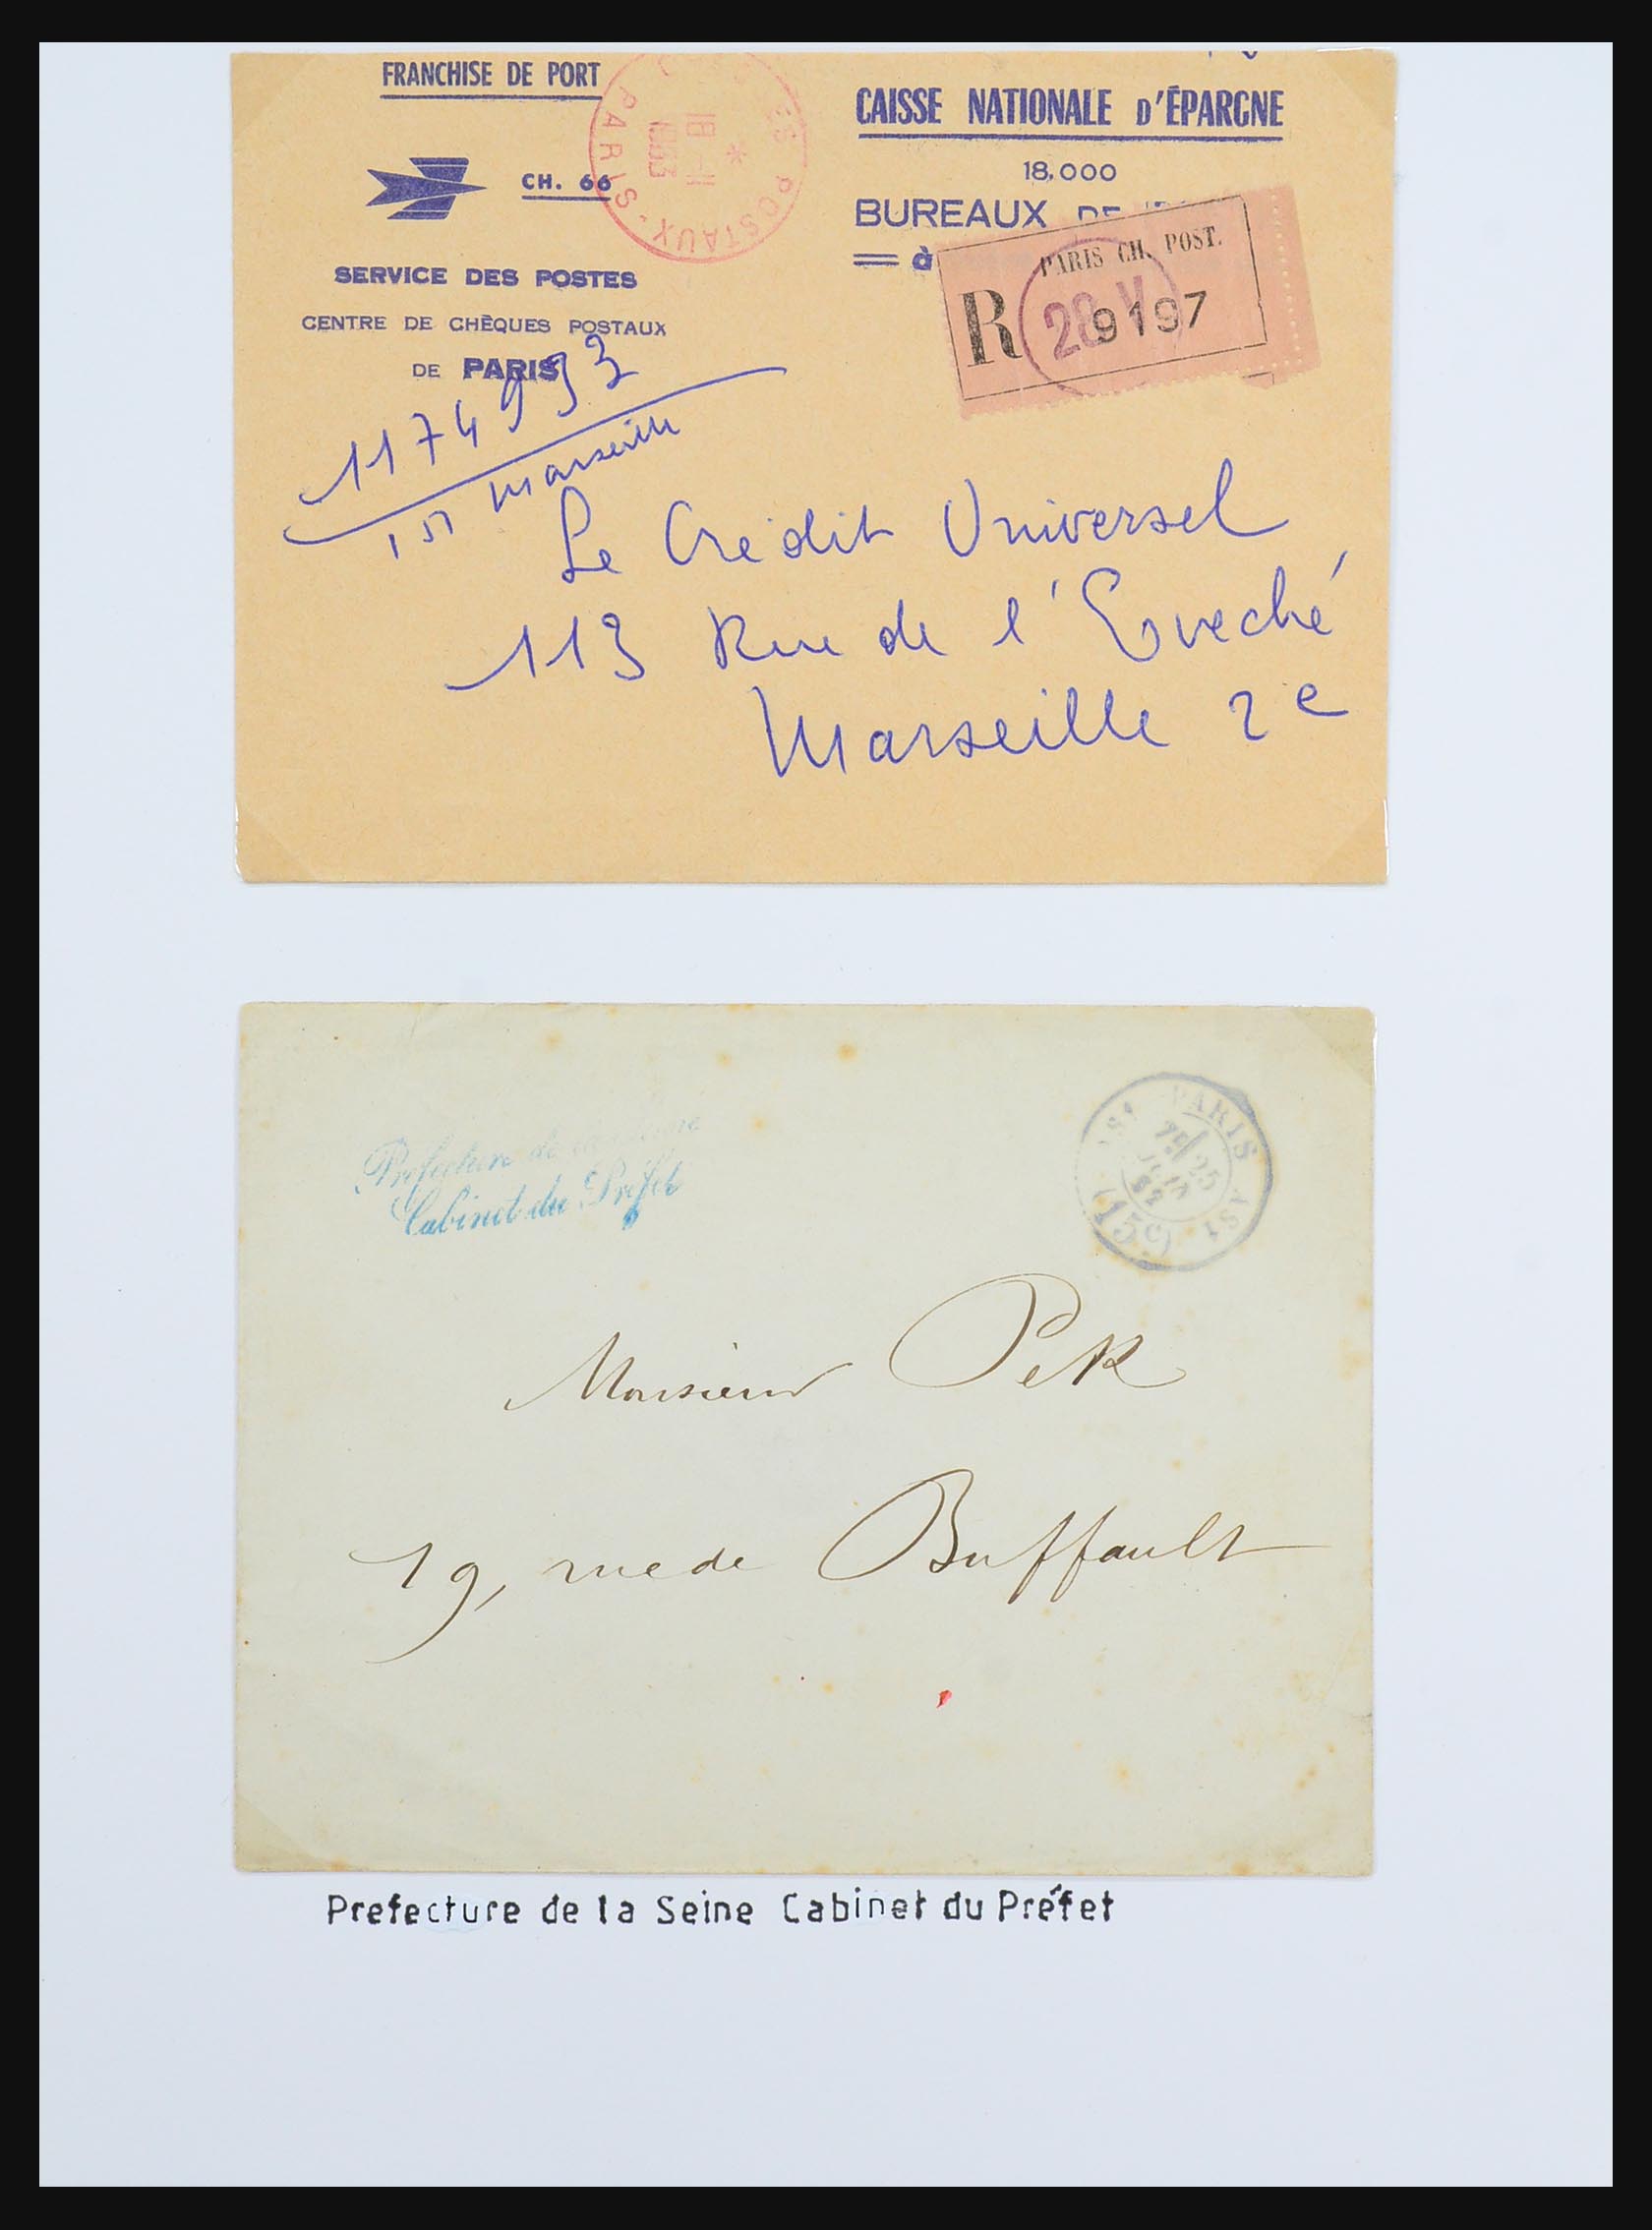 FRANCHISE DE PORT
CH. 66
SERVICE DES POSTES
CENTRE DE CHÈQUES POSTAUX
DE PARIS
POSTAUX - PARIS
18-11
1963
CAISSE NATIONALE D'ÉPARGNE
18.000
BUREAUX DE
= à
PARIS CH. POST.
R 9197
1174993
Marseille
Le Crédit Universel
113 Rue de l'Eveché
Marseille 2e
Prefecture de
Cabinet du Préfet
PARIS
25
Monsieur Pek
19, rue de Buffault
Prefecture de la Seine Cabinet du Préfet